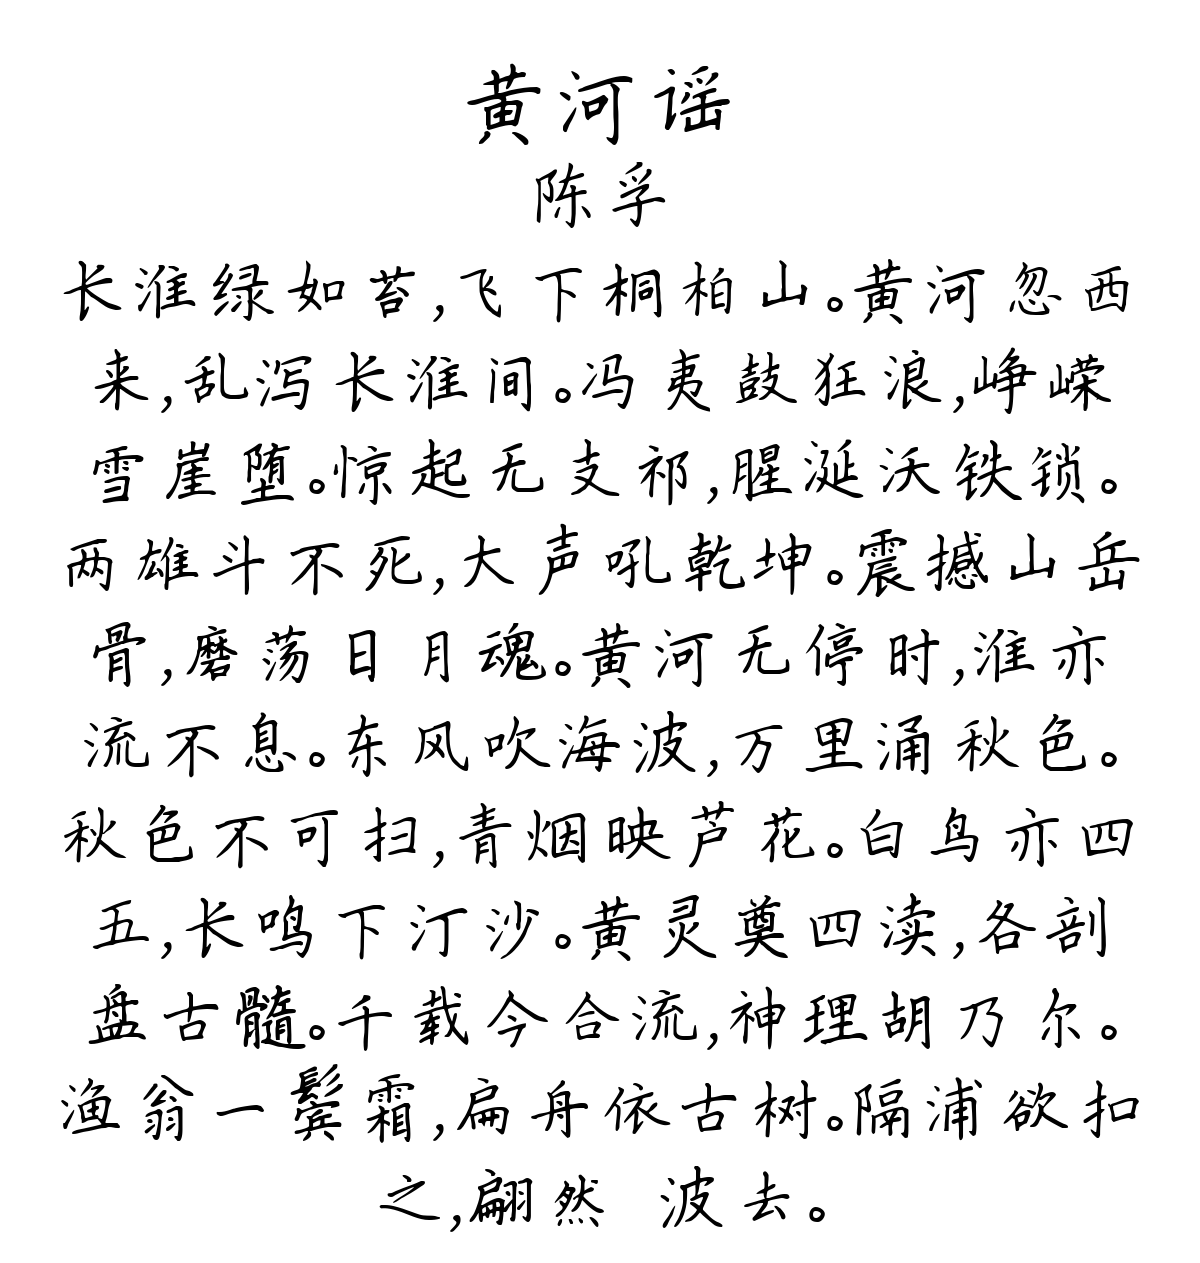 黄河谣
陈孚
长淮绿如苔,飞下桐柏山。黄河忽西
来,乱泻长淮间。冯夷鼓狂浪,峥嵘
雪崖堕。惊起无支祁,腥涎沃铁锁。
两雄斗不死,大声吼乾坤。震撼山岳
骨,磨荡日月魂。黄河无停时,淮亦
流不息。东风吹海波,万里涌秋色。
秋色不可扫,青烟映芦花。白鸟亦四
五,长鸣下汀沙。黄灵奠四渎,各剖
盘古髓。千载今合流,神理胡乃尔。
渔翁一鬓霜,扁舟依古树。隔浦欲扣
之,翩然 波去。